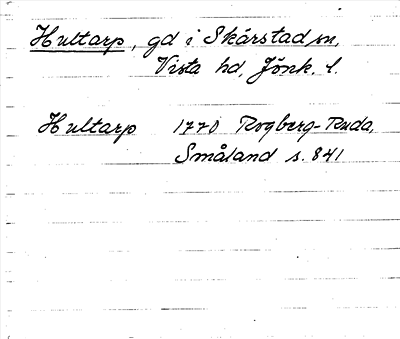 Hultarp, gd i Skärstad sn,
Vista hd, Jönk. l.
Hultarp 1770 Rogberg-Ruda,
Småland s. 841